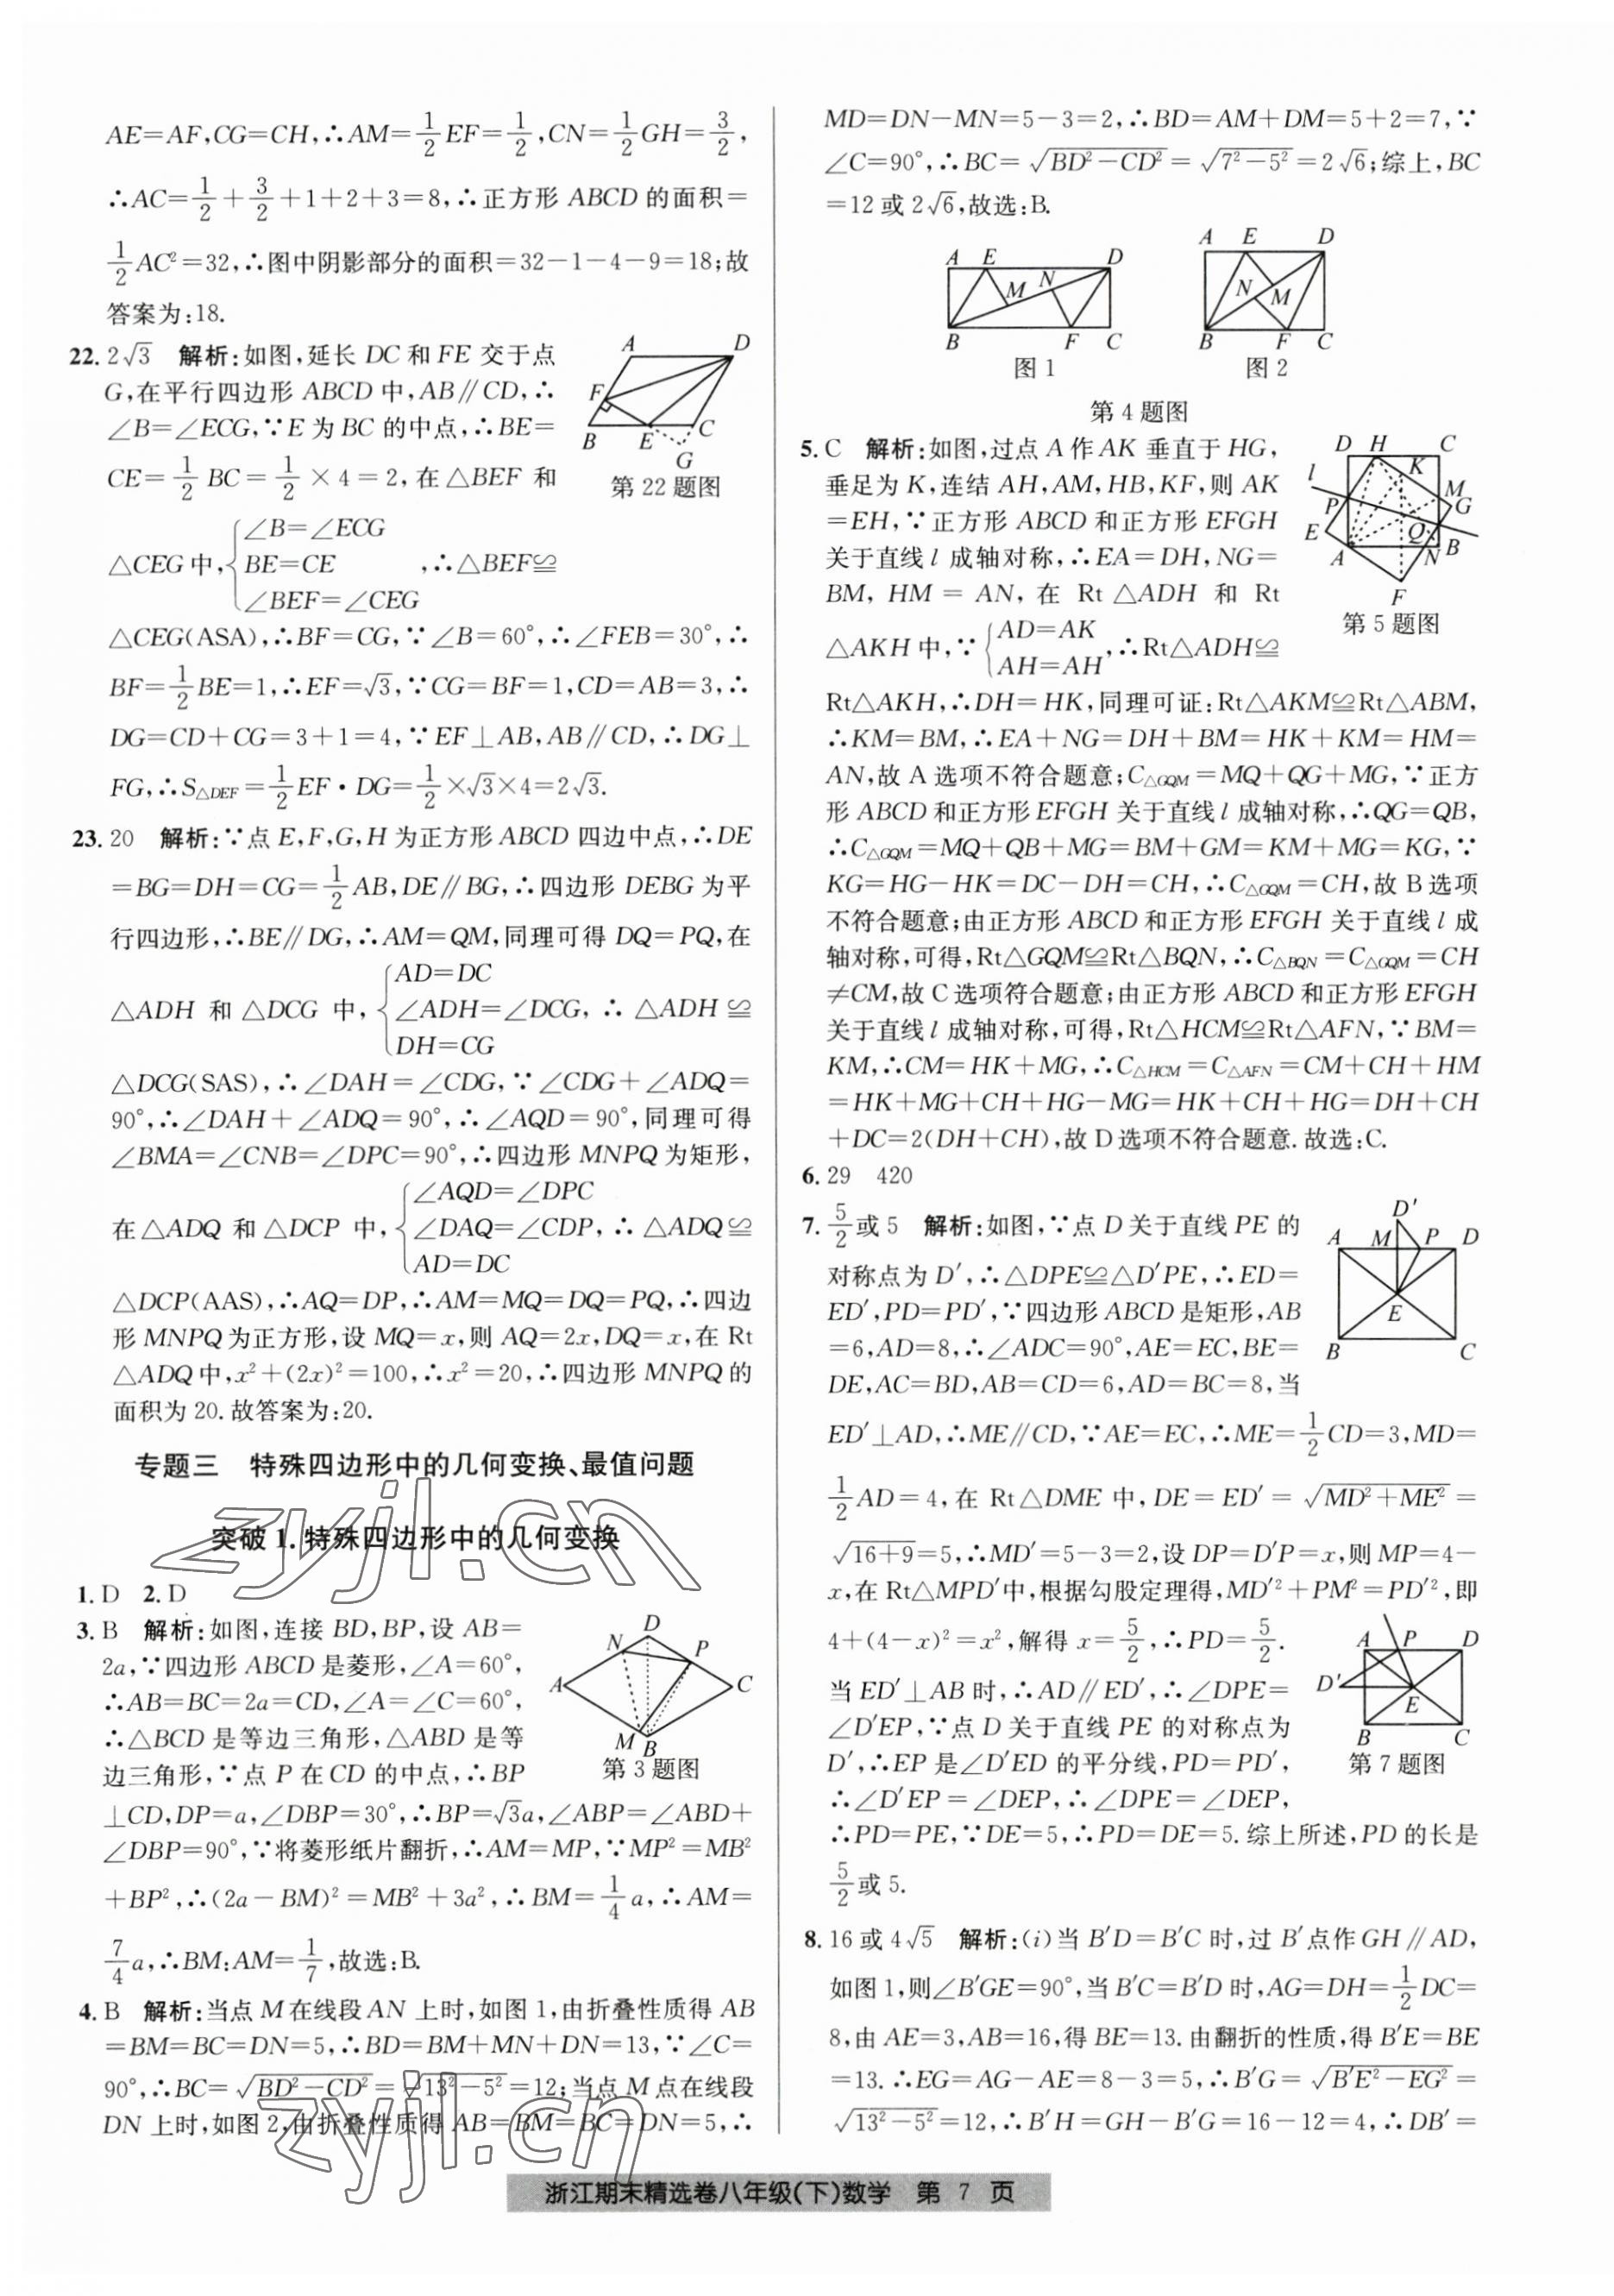 AE=AF,CG=CH,∴AM=1/2EF=1/2,CN=1/2GH=3/2,
∴AC=1/2+3/2+1+2+3=8,∴正方形 ABCD 的面积=
1/2AC²=32,∴图中阴影部分的面积=32-1-4-9=18;故
答案为:18.
22. 2√3 解析:如图,延长 DC 和 FE 交于点
G,在平行四边形 ABCD 中,AB∥CD,∴
∠B=∠ECG,∵E 为 BC 的中点,∴BE=
CE=1/2 BC=1/2×4=2,在△BEF 和
△CEG中,{∠B=∠ECG
BE=CE
∠BEF=∠CEG ,∴△BEF≌
△CEG(ASA),∴BF=CG,∵∠B=60°,∴∠FEB=30°,∴
BF=1/2BE=1,∴EF=√3,∵CG=BF=1,CD=AB=3,∴
DG=CD+CG=3+1=4,∵EF⊥AB,AB∥CD,∴DG⊥
FG,∴S△DEF=1/2EF·DG=1/2×√3×4=2√3.
A D F B E C G
第22题图
23. 20 解析:∵点 E,F,G,H 为正方形 ABCD 四边中点,∴DE
=BG=DH=CG=1/2AB,DE∥BG,∴四边形 DEBG 为平
行四边形,∴BE∥DG,∴AM=QM,同理可得 DQ=PQ,在
△ADH 和 △DCG 中,{AD=DC
∠ADH=∠DCG, ∴△ADH≌
DH=CG
△DCG(SAS),∴∠DAH=∠CDG,∵∠CDG+∠ADQ=
90°,∴∠DAH+∠ADQ=90°,∴∠AQD=90°,同理可得
∠BMA=∠CNB=∠DPC=90°,∴四边形 MNPQ 为矩形,
在△ADQ 和△DCP 中,{∠AQD=∠DPC
∠DAQ=∠CDP,∴△ADQ≌
AD=DC
△DCP(AAS),∴AQ=DP,∴AM=MQ=DQ=PQ,∴四边
形 MNPQ 为正方形,设 MQ=x,则 AQ=2x,DQ=x,在 Rt
△ADQ 中,x²+(2x)²=100,∴x²=20,∴四边形 MNPQ 的
面积为 20.故答案为:20.
专题三 特殊四边形中的几何变换、最值问题
突破 1.特殊四边形中的几何变换
zyjl.cn
1. D 2. D
3. B 解析:如图,连接 BD,BP,设 AB=
2a,∵四边形 ABCD 是菱形,∠A=60°,
∴AB=BC=2a=CD,∠A=∠C=60°,
∴△BCD 是等边三角形,△ABD 是等
边三角形,∵点 P 在 CD 的中点,∴BP
⊥CD,DP=a,∠DBP=30°,∴BP=√3a,∠ABP=∠ABD+
∠DBP=90°,∵将菱形纸片翻折,∴AM=MP,∵MP²=MB²
+BP²,∴(2a-BM)²=MB²+3a²,∴BM=1/4a,∴AM=
7/4a,∴BM:AM=1/7,故选:B.
D N P A C M B
第3题图
4. B 解析:当点 M 在线段 AN 上时,如图 1,由折叠性质得 AB
=BM=BC=DN=5,∴BD=BM+MN+DN=13,∵∠C=
90°,∴BC=√(BD²-CD²)=√(13²-5²)=12;当点 M 点在线段
DN 上时,如图 2,由折叠性质得 AB=BM=BC=DN=5,∴
zyjl.cn
MD=DN-MN=5-3=2,∴BD=AM+DM=5+2=7,∵
∠C=90°,∴BC=√(BD²-CD²)=√(7²-5²)=2√6;综上,BC
=12 或 2√6,故选:B.
A E D M N B F C
图 1
A E D N M B F C
图 2
第4题图
5. C 解析:如图,过点 A 作 AK 垂直于 HG,
垂足为 K,连结 AH,AM,HB,KF,则 AK
=EH,∵正方形 ABCD 和正方形 EFGH
关于直线 l 成轴对称,∴EA=DH,NG=
BM, HM=AN, 在 Rt△ADH 和 Rt
△AKH 中,∵{AD=AK
AH=AH,∴Rt△ADH≌
Rt△AKH,∴DH=HK,同理可证:Rt△AKM≌Rt△ABM,
∴KM=BM,∴EA+NG=DH+BM=HK+KM=HM=
AN,故 A 选项不符合题意;C△GQM=MQ+QG+MG,∵正方
形 ABCD 和正方形 EFGH 关于直线 l 成轴对称,∴QG=QB,
∴C△GQM=MQ+QB+MG=BM+GM=KM+MG=KG,∵
KG=HG-HK=DC-DH=CH,∴C△GQM=CH,故 B 选项
不符合题意;由正方形 ABCD 和正方形 EFGH 关于直线 l 成
轴对称,可得,Rt△GQM≌Rt△BQN,∴C△BQN=C△GQM=CH
≠CM,故 C 选项符合题意;由正方形 ABCD 和正方形 EFGH
关于直线 l 成轴对称,可得,Rt△HCM≌Rt△AFN,∵BM=
KM,∴CM=HK+MG,∴C△HCM=C△AFN=CM+CH+HM
=HK+MG+CH+HG-MG=HK+CH+HG=DH+CH
+DC=2(DH+CH),故 D 选项不符合题意.故选:C.
D H C l K M P G E Q A N B F
第5题图
6. 29 420
7. 5/2或 5 解析:如图,∵点 D 关于直线 PE 的
对称点为 D′,∴△DPE≌△D′PE,∴ED=
ED′,PD=PD′,∵四边形 ABCD 是矩形,AB
=6,AD=8,∴∠ADC=90°,AE=EC,BE=
DE,AC=BD,AB=CD=6,AD=BC=8,当
ED′⊥AD,∴ME∥CD,∵AE=EC,∴ME=1/2CD=3,MD=
1/2AD=4,在 Rt△DME 中,DE=ED′=√(MD²+ME²)=
√(16+9)=5,∴MD′=5-3=2,设 DP=D′P=x,则 MP=4-
x,在 Rt△MPD′中,根据勾股定理得,MD′²+PM²=PD′²,即
4+(4-x)²=x²,解得 x=5/2,∴PD=5/2.
当 ED′⊥AB 时,∴AD∥ED′,∴∠DPE=
∠D′EP,∵点 D 关于直线 PE 的对称点为
D′,∴EP 是∠D′ED 的平分线,PD=PD′,
∴∠D′EP=∠DEP,∴∠DPE=∠DEP,
∴PD=PE,∵DE=5,∴PD=DE=5.综上所述,PD 的长是
5/2或 5.
D′ A M P D E B C
A P D D′ E B C
第7题图
8. 16 或 4√5 解析:(i)当 B′D=B′C 时,过 B′点作 GH∥AD,
如图 1,则∠B′GE=90°,当 B′C=B′D 时,AG=DH=1/2DC=
8,由 AE=3,AB=16,得 BE=13.由翻折的性质,得 B′E=BE
=13.∴EG=AG-AE=8-3=5,∴B′G=√(B′E²-EG²)=
√(13²-5²)=12,∴B′H=GH-B′G=16-12=4,∴DB′=
浙江期末精选卷八年级(下)数学 第 7 页